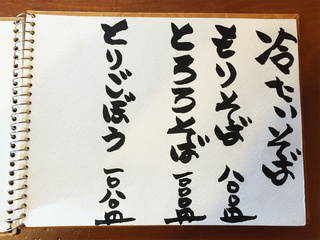 冷たいそば
もりそば 八〇〇円
とろろそば 一、〇〇〇円
とりごぼう 一、〇八〇円